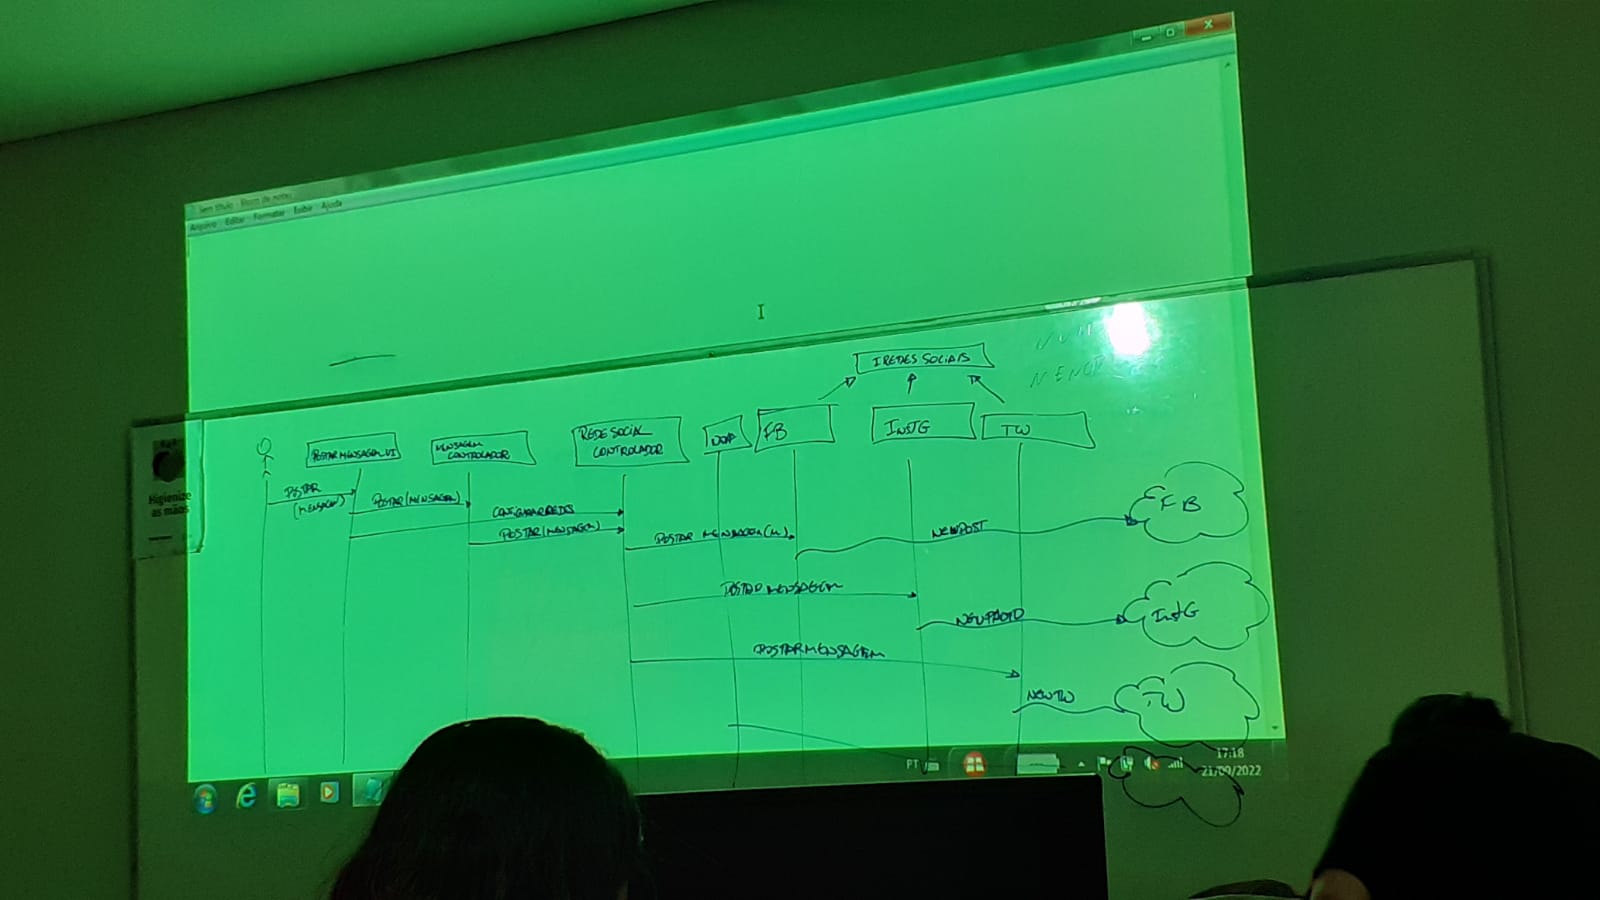 Sem título - Bloco de notas
Arquivo Editar Formatar Exibir Ajuda
IREDES SOCIAIS
POSTAR MENSAGEM UI
MENSAGEM
CONTROLADOR
REDE SOCIAL
CONTROLADOR
FB
INSTG
TW
POSTAR
(MENSAGEM)
POSTAR(MENSAGEM)
CONFIGURARREDES
POSTAR(MENSAGEM)
POSTAR MENSAGEM(M)
NEWPOST
FB
POSTARMENSAGEM
INSTG
POSTARMENSAGEM
NEWTW
TW
Higienize
as mãos
PT
17:18
21/09/2022